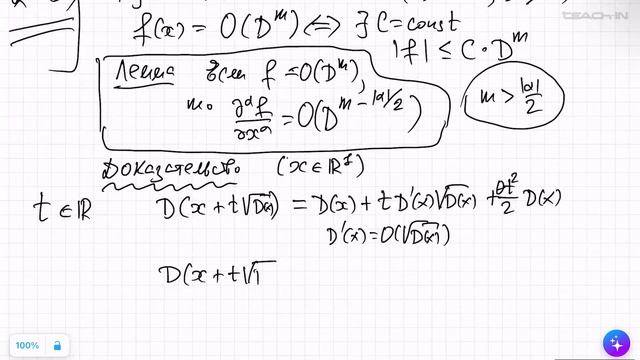 TEACH-IN
f(x) = O(D^m) ⟺ ∃ C = const
|f| ≤ C · D^m
Лемма Если f = O(D^m),
то ∂^α f / ∂x^α = O(D^{m - |α|/2})
m > |α|/2
Доказательство (x ∈ ℝ^1)
t ∈ ℝ D(x + t√D(x)) = D(x) + t D'(x)√D(x) + t^2/2 D(x)
D'(x) = O(√D(x))
D(x + t√
100%